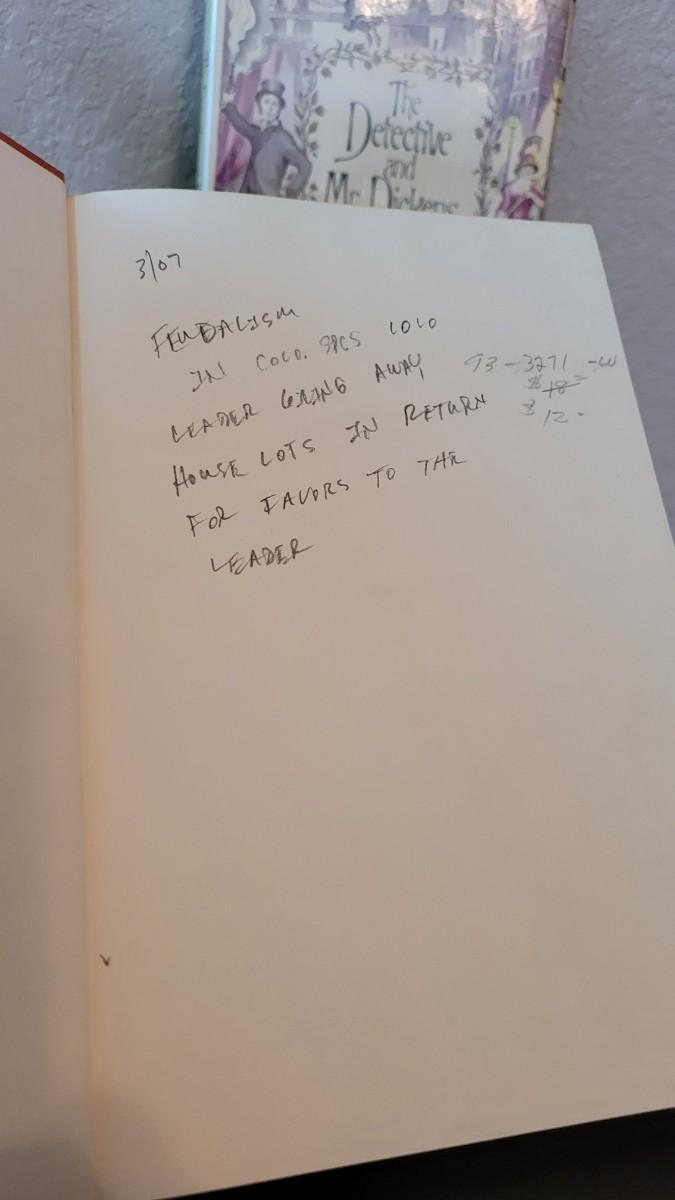 The
Detective
and
Mr. Dickens
3/07
FEUDALISM
IN COLO. SPGS COLO
LEADER GIVING AWAY
HOUSE LOTS IN RETURN
FOR FAVORS TO THE
LEADER
93-3271-W
$18-
$12-